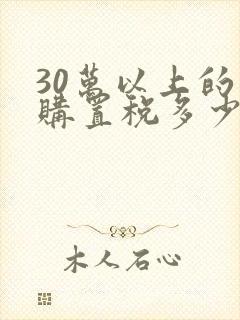 30萬以上的
購置稅多少
木人石心